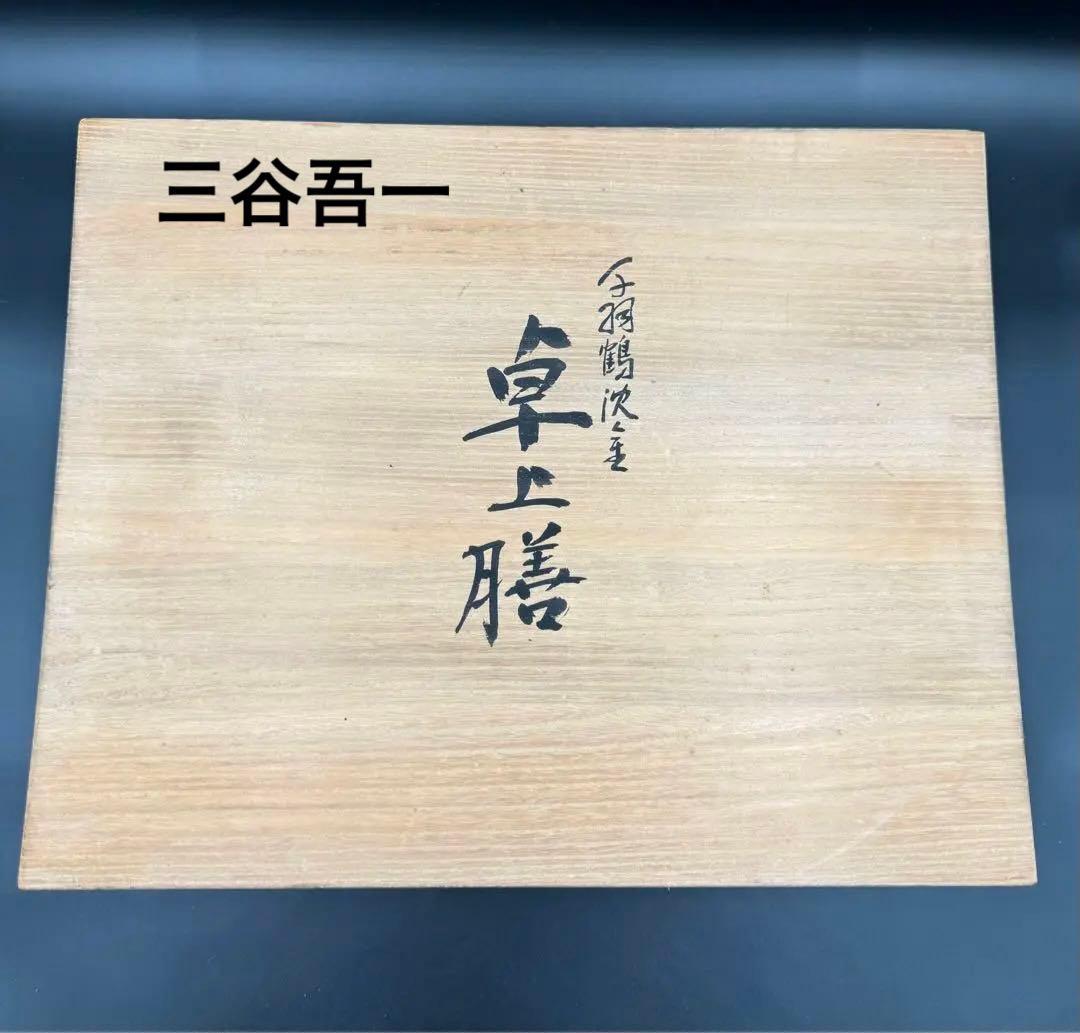 三谷吾一
千羽鶴沈金
卓上膳